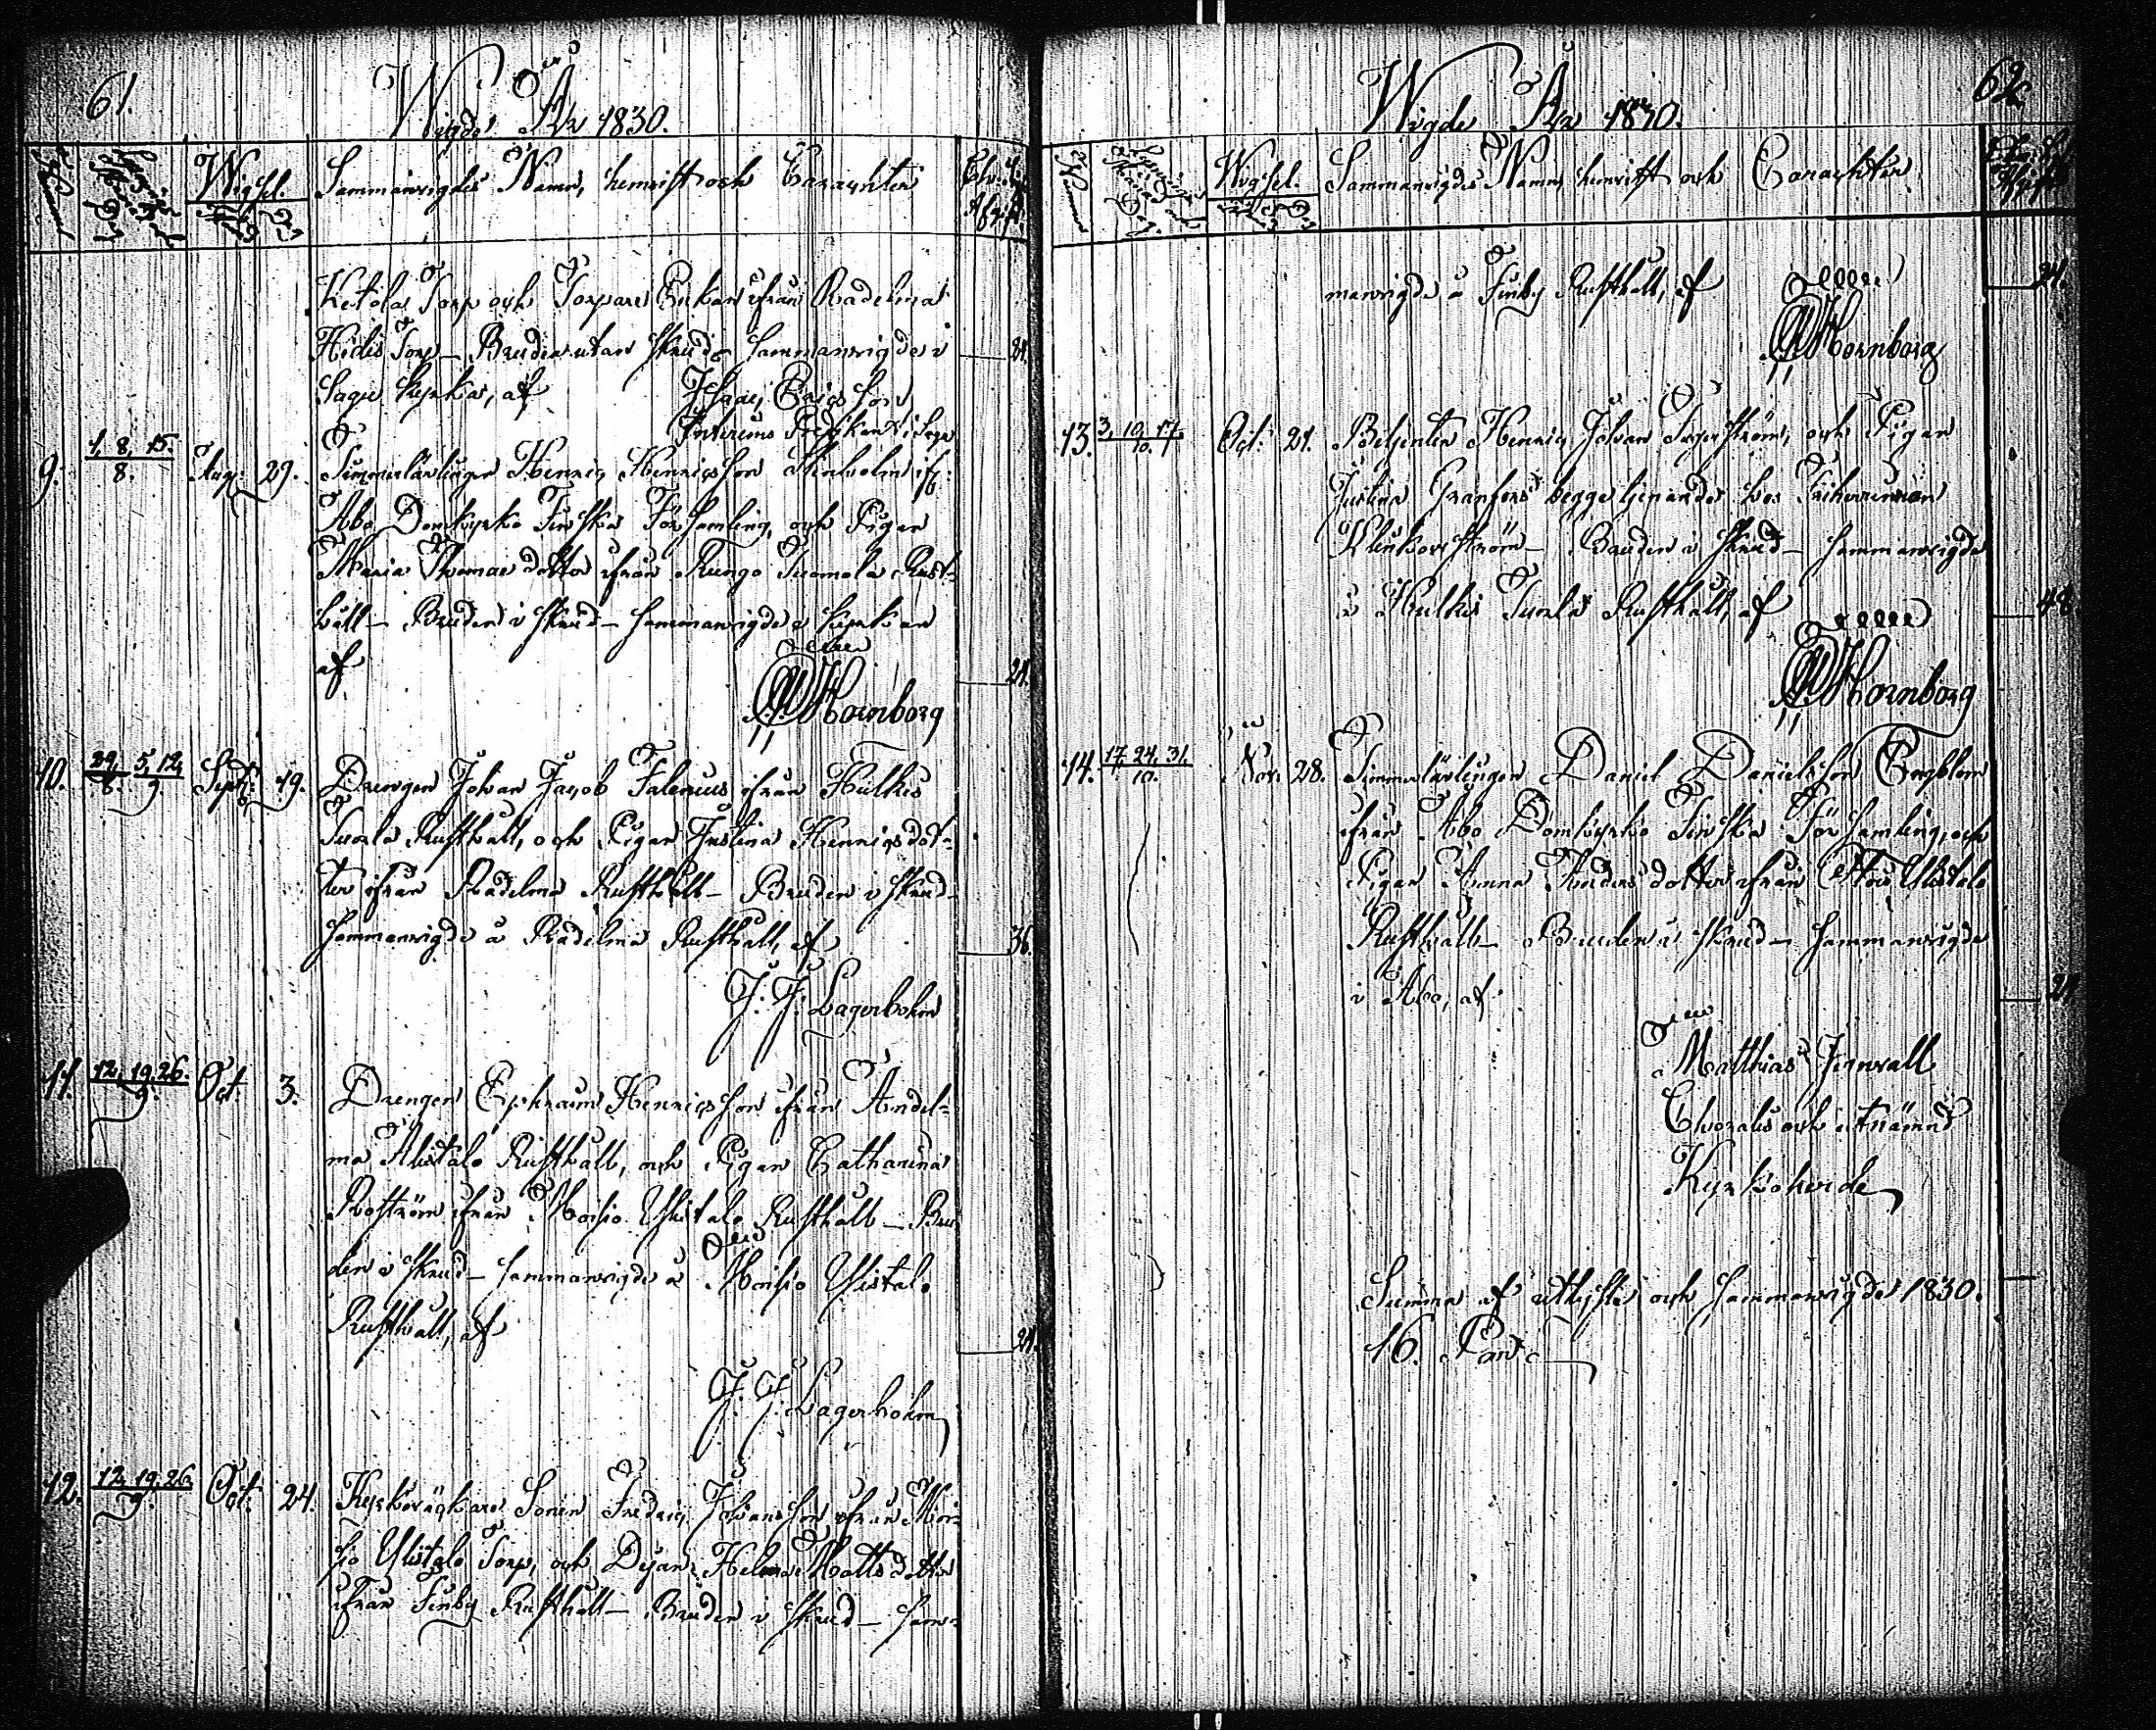 61.
Wigde År 1830.
Wigsel.
Sammanwigdes Namn, hemwist och Carachter
Ketola Torp och Torpare Enkan ifrån Radelma
Heikis Torp – Bruden utan skrud – sammanwigde i
Sagu kyrka, af
Isaac Ericsson
Interims Predikant i Sagu
9. 1, 8, 15. / 8. Aug: 29. Timmerlärlingen Henric Henricsson ifr:
Åbo Domkyrko Finska Församling, och Pigan
Maria Thomasdotter ifrån Rungo Tuomola Rust-
håll – Bruden i skrud – sammanwigde i kyrkan
af
Hornborg
21.
10. 29. / 8. 5, 12. / 9. Sept: 19. Drengen Johan Jacob Falenius ifrån Hulkis
Tuorla Rusthåll, och Pigan Justina Henricsdot-
ter ifrån Radelma Rusthåll – Bruden i skrud –
sammanwigde å Radelma Rusthåll, af
36.
J. J. Lagerbohm
11. 12, 19, 26. / 9. Oct: 3. Drengen Ephraim Henricsson ifrån Andel-
ma Alistalo Rusthåll, och Pigan Catharina
Roström ifrån Moisio Ylistalo Rusthåll – Bru-
den i skrud – sammanwigde å Moisio Ylistalo
Rusthåll, af
J. J. Lagerbohm
12. 12, 19, 26. / 9. Oct: 24. Sonen Fredric Johansson ifrån Moi-
sio Ylistalo Torp, och Pigan Helena Mattsdotter
ifrån Finby Rusthåll – Bruden i skrud – sam-
62.
Wigde År 1830.
Wigsel.
Sammanwigdes Namn, hemwist och Carachter
manwigde å Finby Rusthåll, af
Hornborg
13. 3, 10, 17. / 10. Oct: 21. Betjenten Henric Johan Sagerström, och Pigan
Justina Granfors begge tjenandes hos Friherrinnan
Klinkowström – Bruden i skrud – sammanwigde
å Hulkis Tuorla Rusthåll, af
48
Hornborg
14. 17, 24, 31. / 10. Nov: 28. Timmerlärlingen Daniel Danielsson Engblom
ifrån Åbo Domkyrko Finska Församling, och
Pigan Anna Andersdotter ifrån Ylistalo
Rusthåll – Bruden i skrud – sammanwigde
i Åbo, af
Matthias
Choralis och utnämnd
Kyrkoherde
Summa af utlyste och sammanwigde 1830.
16. Par